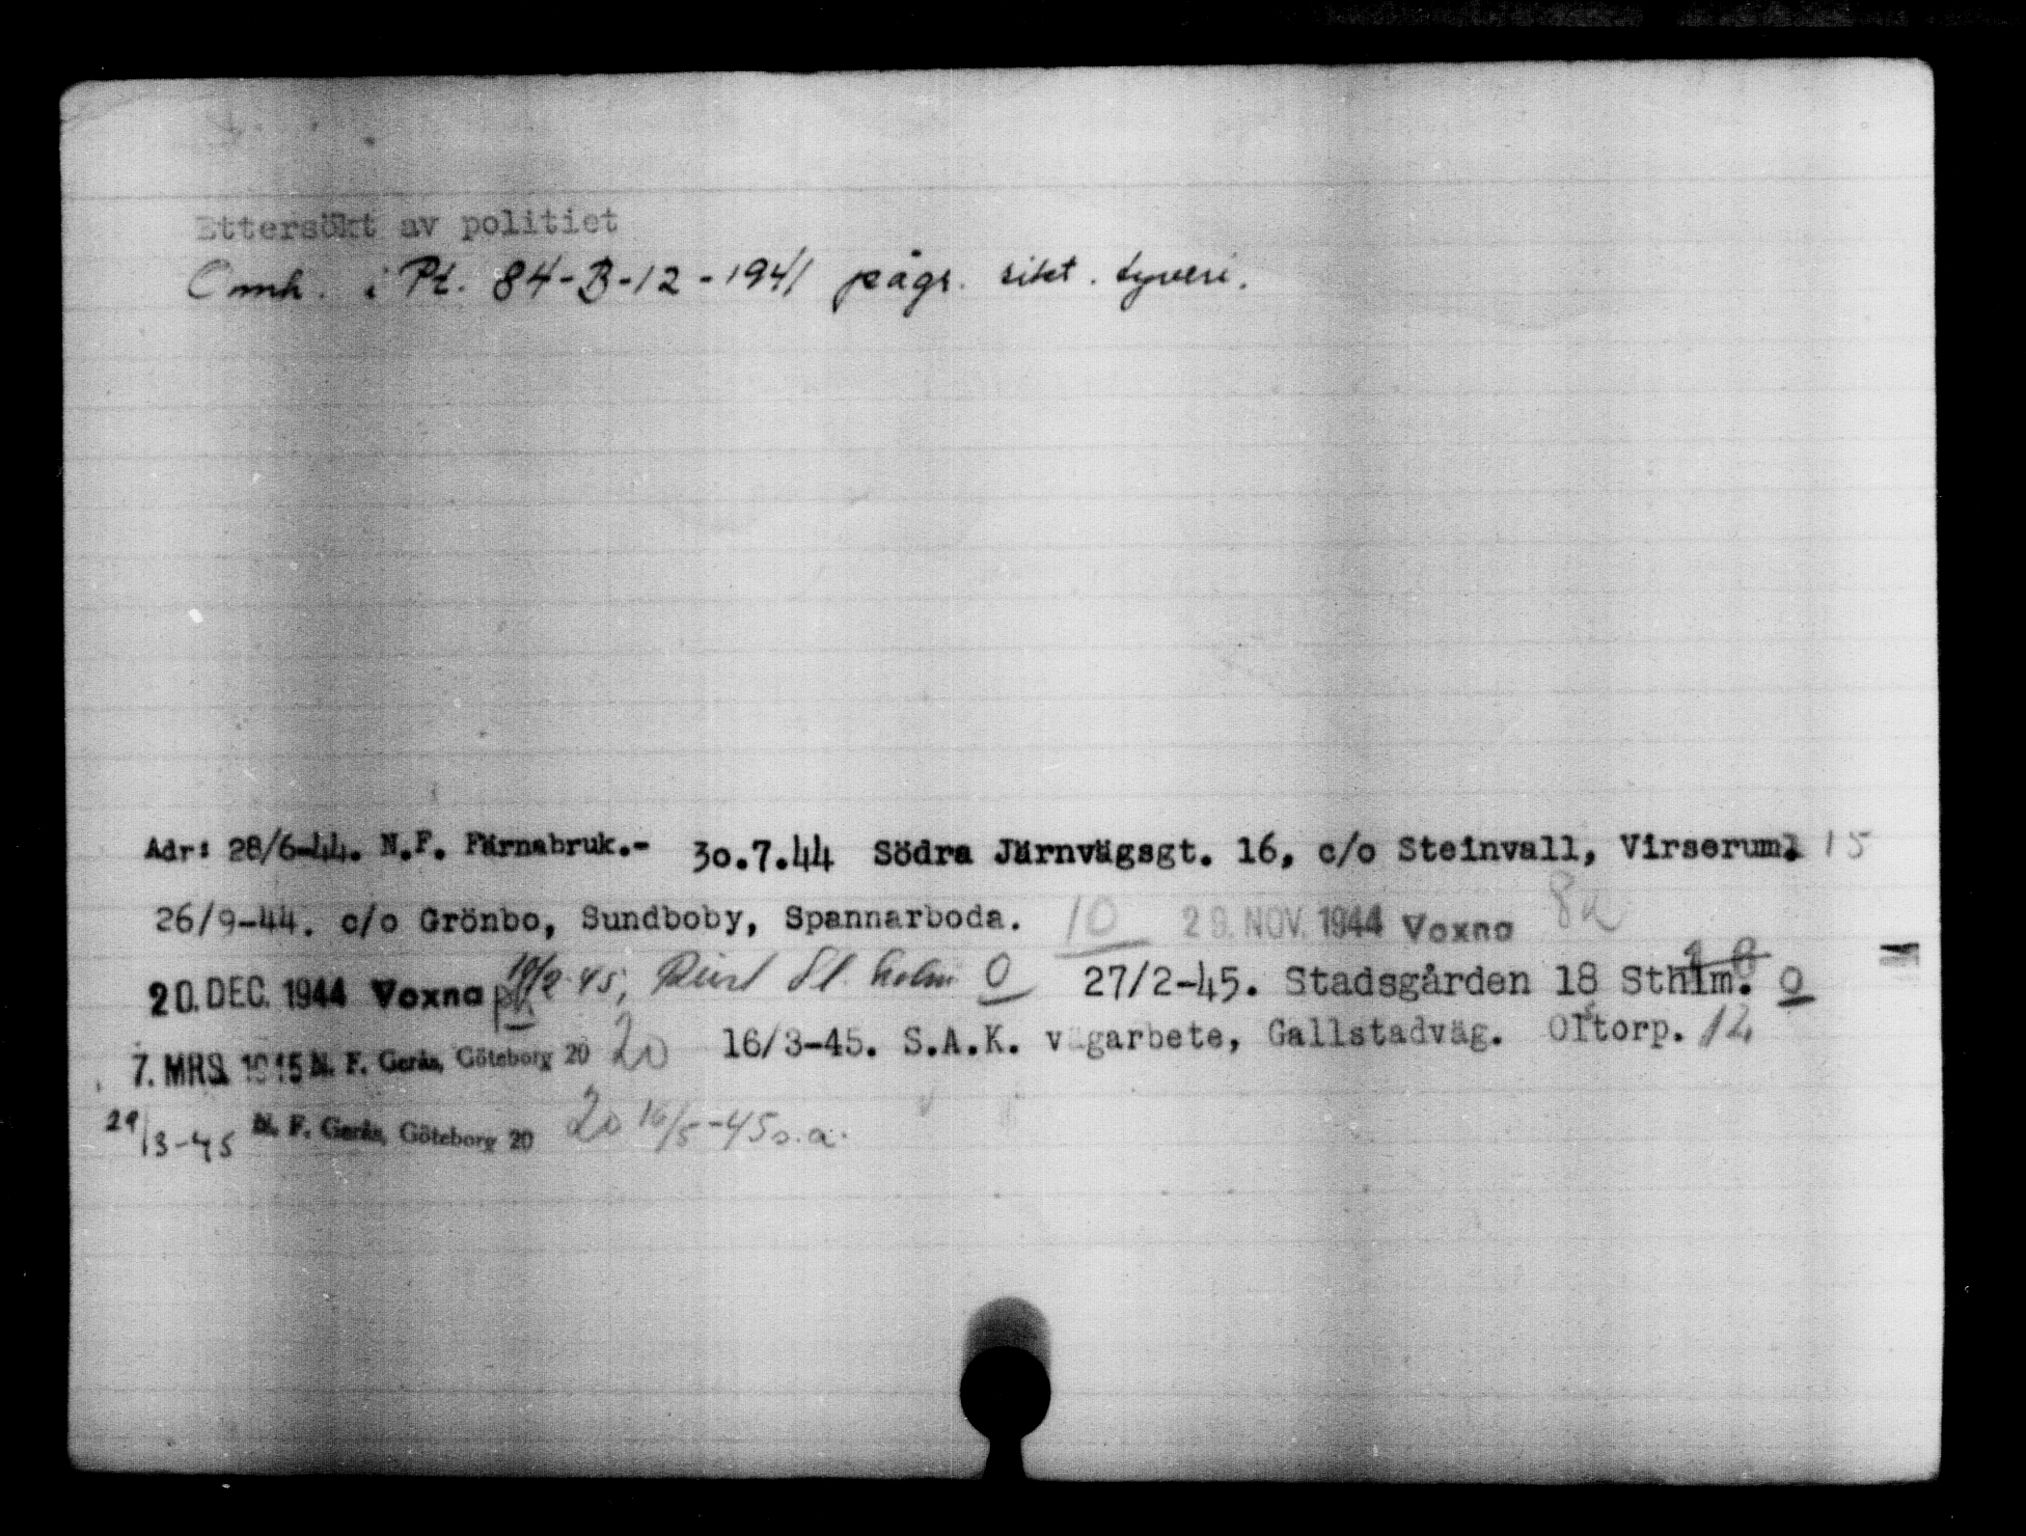 Ettersökt av politiet
Omh. i Pt. 84-B-12-1941 pågr. sikt. tyveri.
Adr: 28/6-44. N.F. Färnabruk.- 30.7.44 Södra Järnvägsgt. 16, c/o Steinvall, Virserum. 15
26/9-44. c/o Grönbo, Sundboby, Spannarboda. 10 29. NOV. 1944 Voxna 8a
20. DEC. 1944 Voxna 19/2-45, St. holm 0 27/2-45. Stadsgården 18 Sthlm. 0
7. MRS. 1945 N. F. Gerås, Göteborg 20 20 16/3-45. S.A.K. vägarbete, Gallstadväg. Olstorp. 12
29/3-45 N. F. Gerås, Göteborg 20 20 16/5-45 s.a.